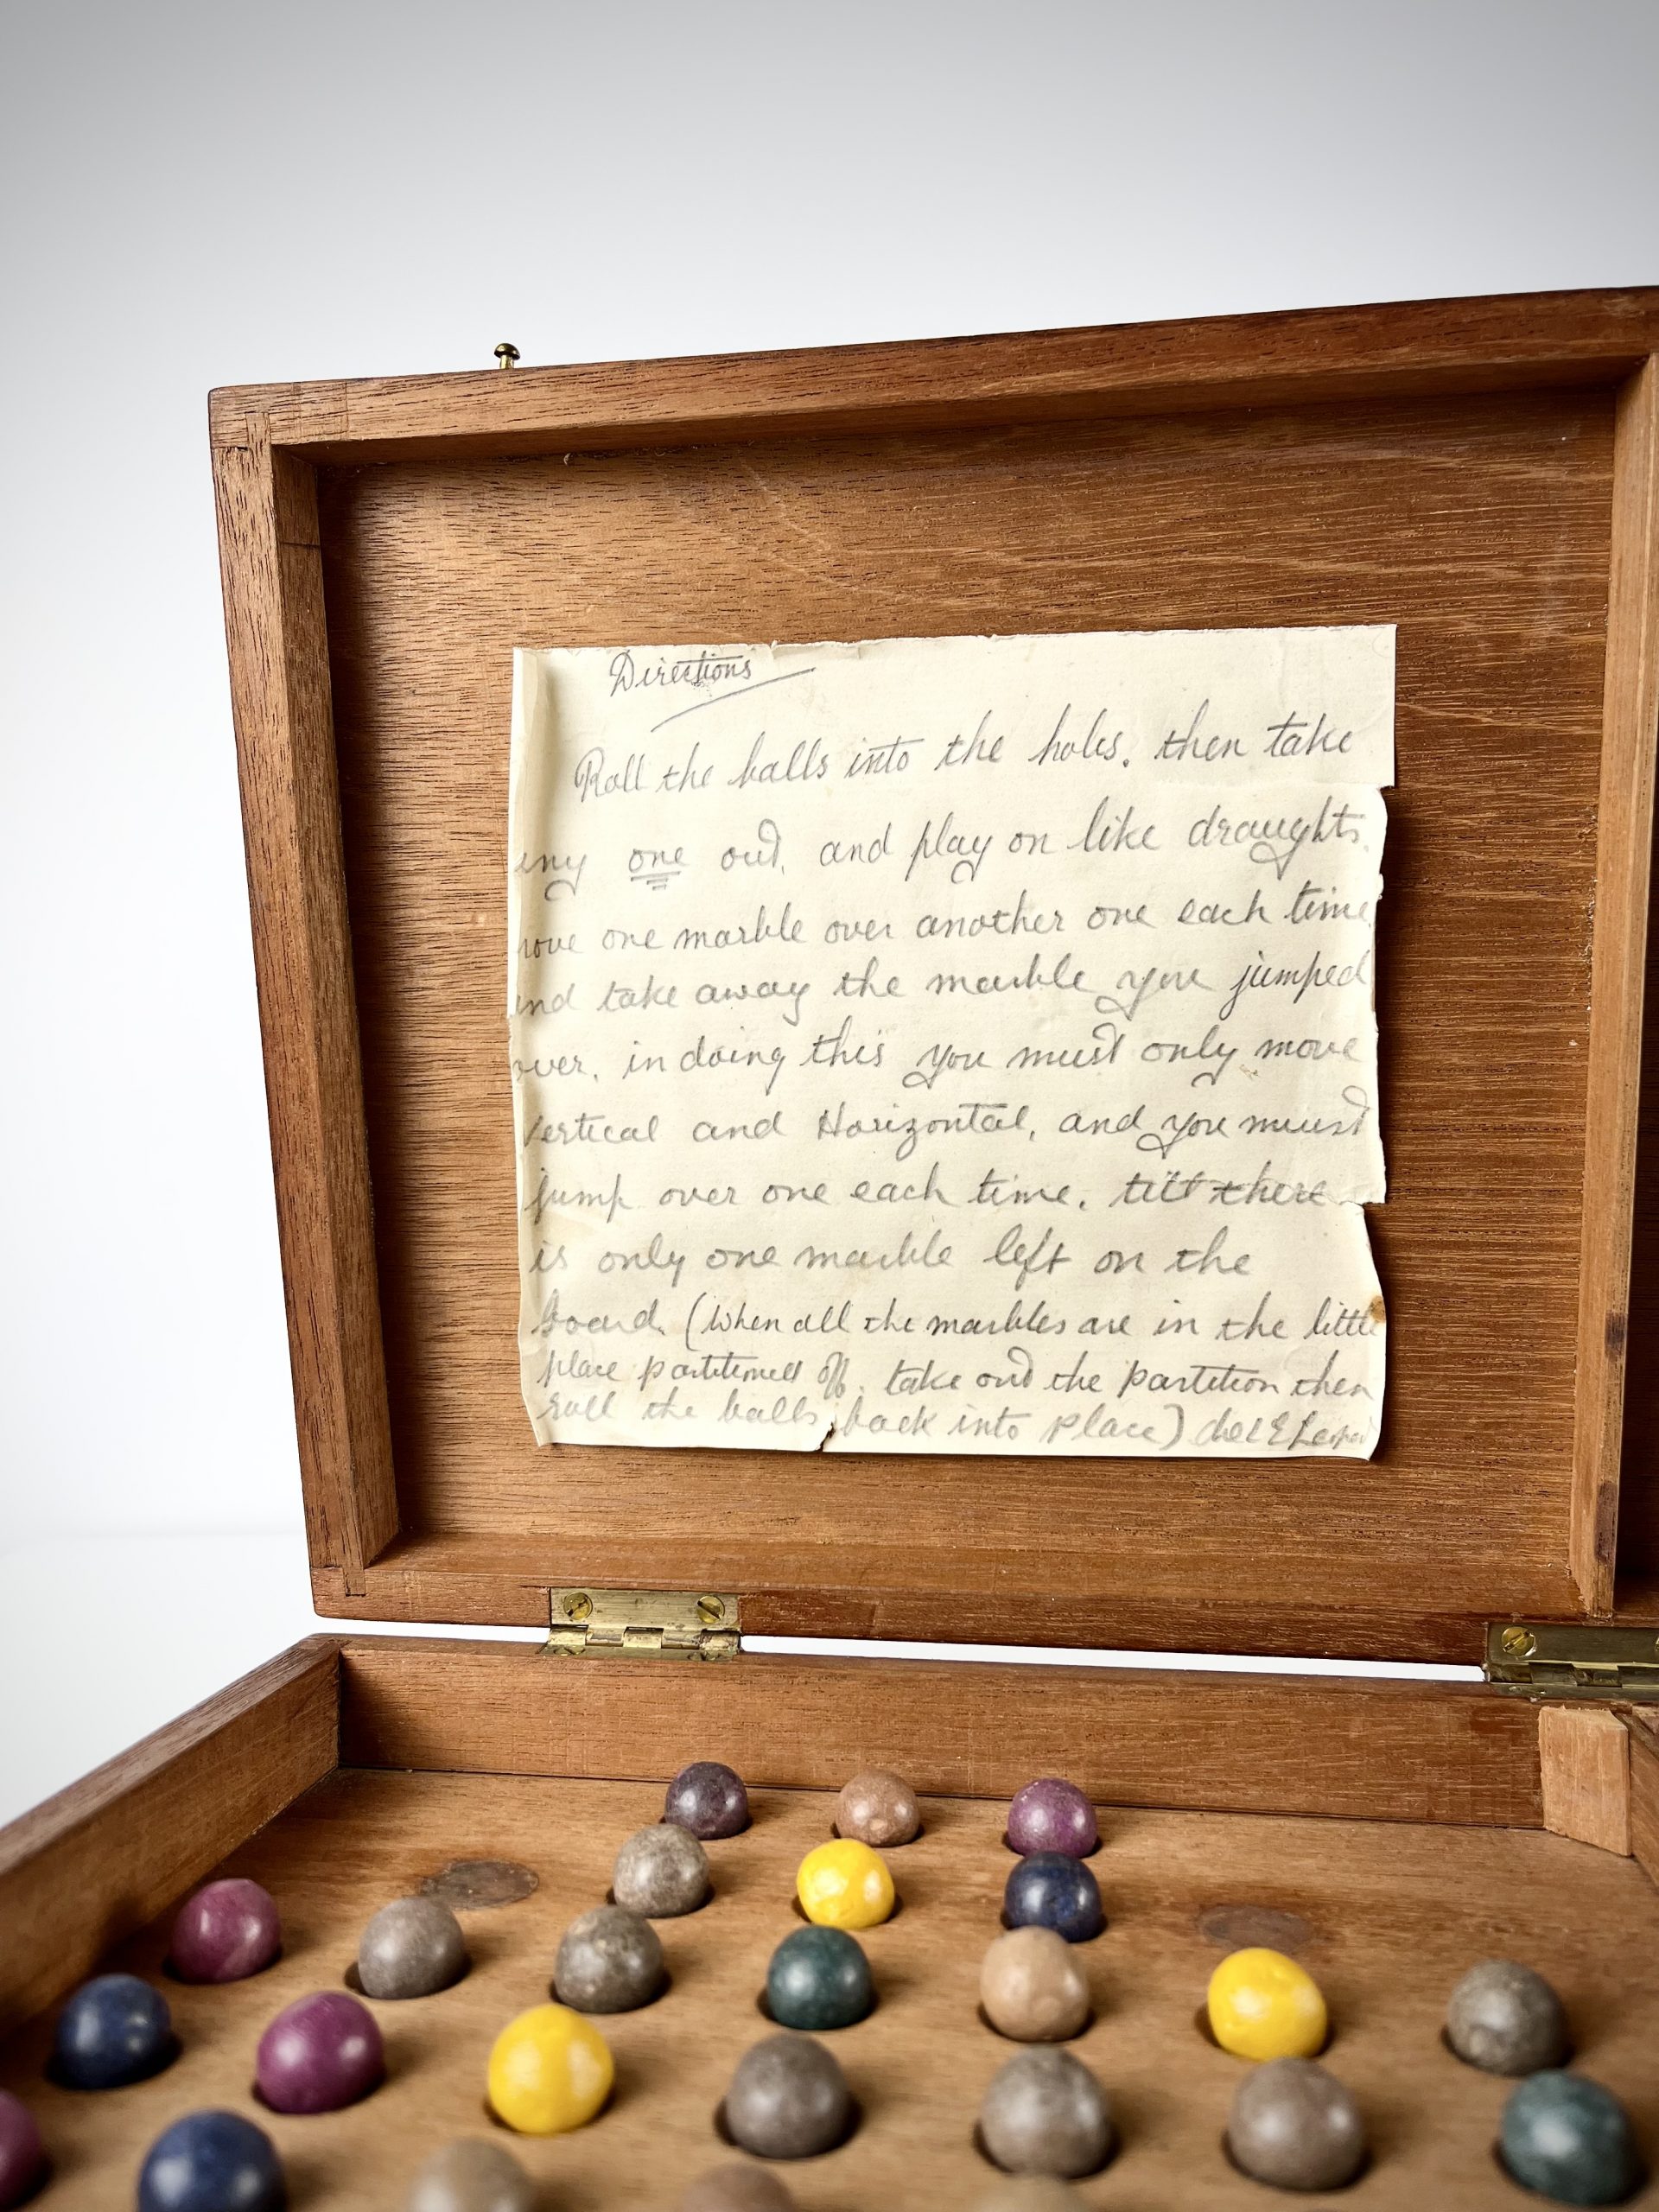 Directions
Roll the balls into the holes. then take
any one out. and play on like draughts.
move one marble over another one each time
and take away the marble you jumped
over. in doing this you must only move
Vertical and Horizontal, and you must
jump over one each time. till there
is only one marble left on the
board. (When all the marbles are in the little
place partitioned off. take out the partition then
roll the balls back into place)